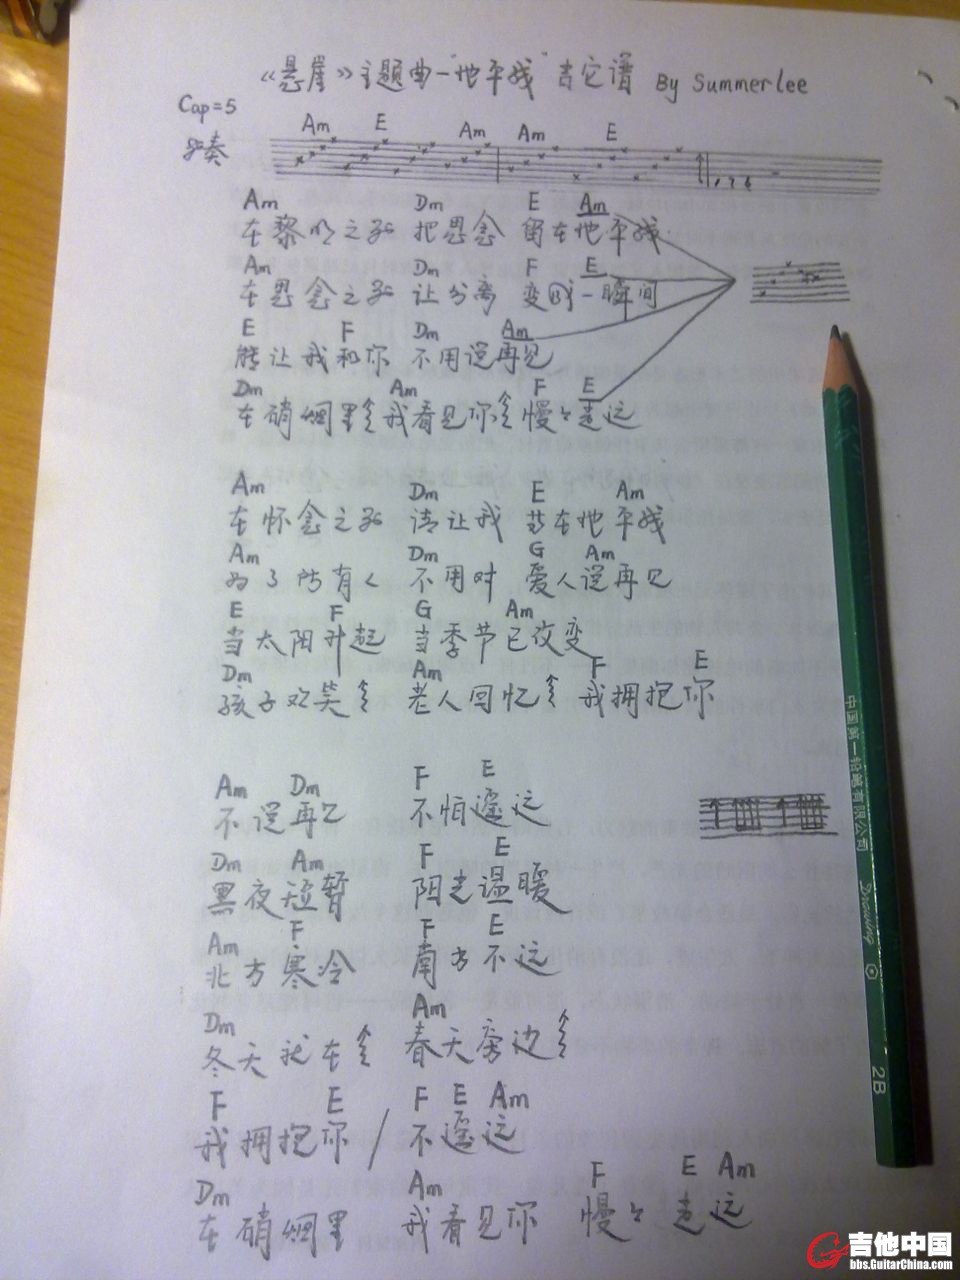 《悬崖》主题曲-"地平线"吉它谱 By Summerlee
Cap=5
Am E Am Am E
奏
Am Dm E Am
在黎明之前 把思念 留在地平线
Am Dm F E
在思念之前 让分离 变成一瞬间
E F Dm Am
能让我和你 不用说再见
Dm Am F E
在硝烟里 我看见你 慢々走远
Am Dm E Am
在怀念之前 请让我 梦在地平线
Am Dm G Am
为了所有人 不用对 爱人说再见
E F G Am
当太阳升起 当季节已改变
Dm Am F E
孩子欢笑 老人回忆 我拥抱你
Am Dm F E
不说再见 不怕遥远
Dm Am F E
黑夜短暂 阳光温暖
Am F F E
北方寒冷 南方不远
Dm Am
冬天就在 春天旁边
F E F E Am
我拥抱你 / 不遥远
Dm Am F E Am
在硝烟里 我看见你 慢々走远
中国第一铅笔有限公司 Drawing 2B
吉他中国
bbs.GuitarChina.com